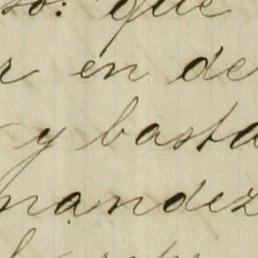 so: que
r en de
y basta
nandez